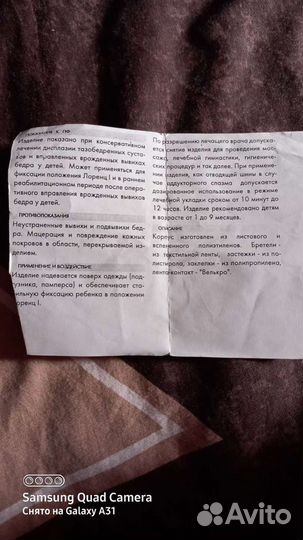 Изделие показано при консервативном
лечении дисплазии тазобедренных суста-
вов и вправленных врожденных вывихах
бедра у детей. Может применяться для
фиксации положения Лоренц I и в раннем
реабилитационном периоде после опера-
тивного вправления врожденных вывихов
бедра у детей.
ПРОТИВОПОКАЗАНИЯ
Неустраненные вывихи и подвывихи бед-
ра. Мацерация и повреждение кожных
покровов в области, перекрываемой из-
делием.
ПРИМЕНЕНИЕ И ВОЗДЕЙСТВИЕ
Изделие надевается поверх одежды (под-
гузника, памперса) и обеспечивает ста-
бильную фиксацию ребенка в положении
Лоренц I.
По разрешению лечащего врача допуска-
ется снятие изделия для проведения мас-
сажа, лечебной гимнастики, гигиеничес-
ких процедур и так далее. При примене-
нии изделия, как отводящей шины в слу-
чае аддукторного спазма допускается
дозированное использование в режиме
лечебной укладки сроком от 10 минут до
12 часов. Изделие рекомендовано детям
в возрасте от 1 до 9 месяцев.
ОПИСАНИЕ
Корпус изготовлен из листового и
вспененного полиэтиленов. Бретели -
из текстильной ленты, застежки - из по-
листирола, заклепки - из полипропилена,
лента-контакт - "Велькро".
Samsung Quad Camera
Снято на Galaxy A31
Avito